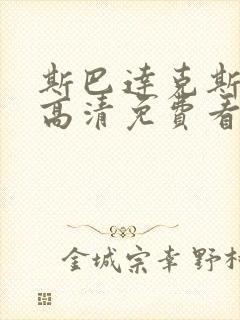 斯巴達克斯
高清免費看
金城宗幸 野村